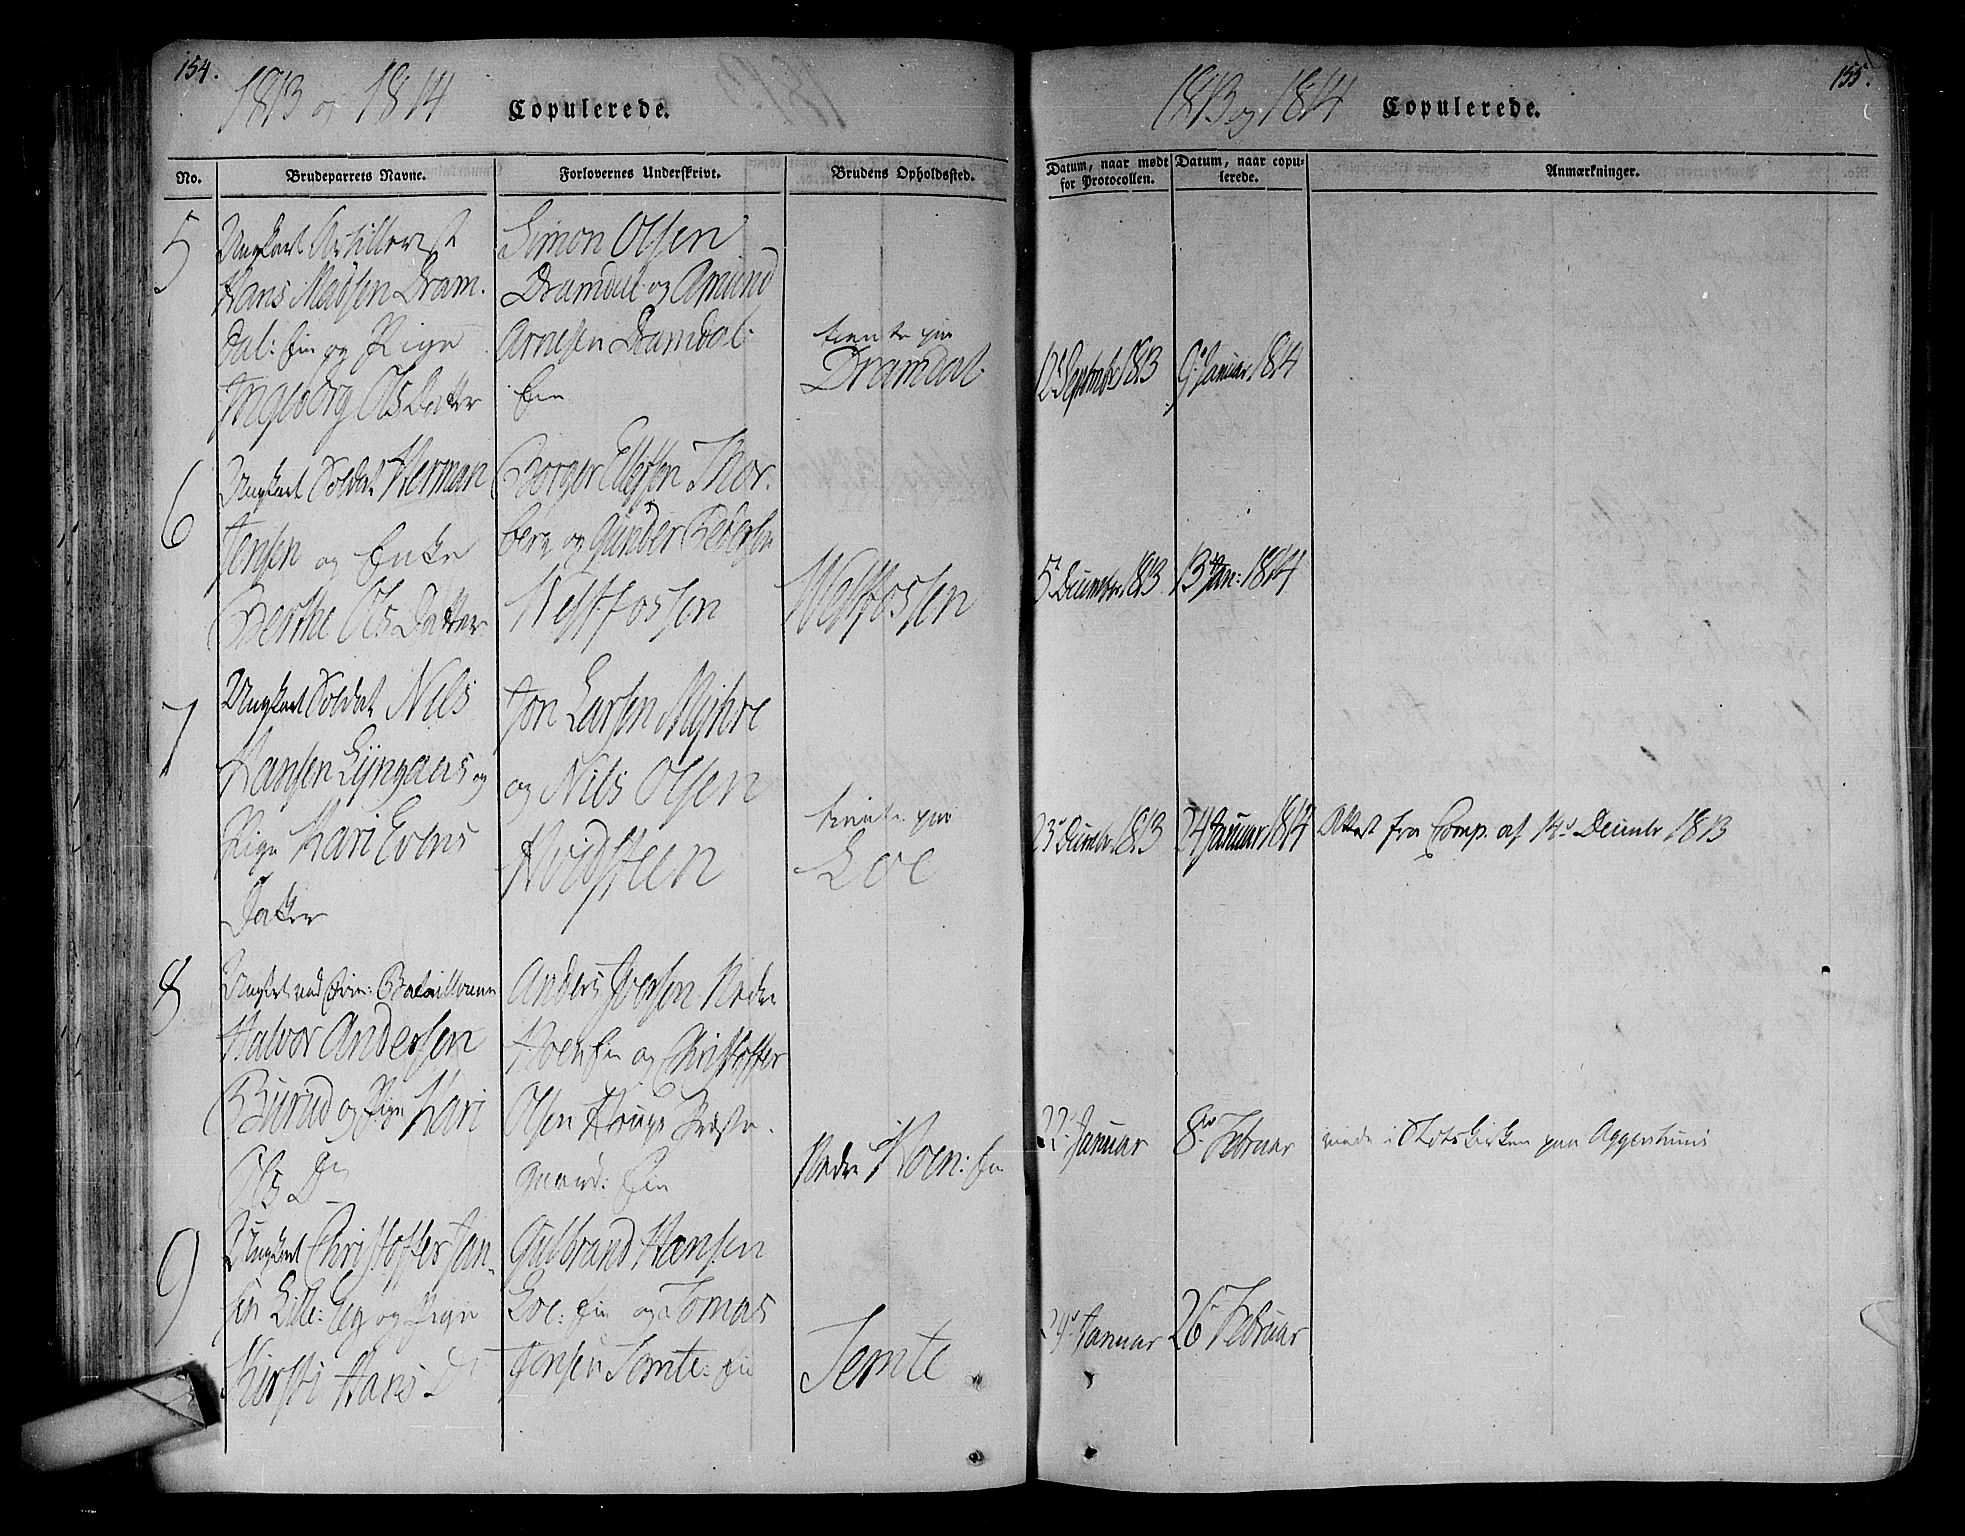 154.
1813 og 1814
Copulerede.
No.
Brudeparrets Navne.
Forlovernes Underskrivt.
Brudens Opholdssted.
5
Ungkarl Artillerist
Hans Madsen Dram-
dal: Ein og Pige
Ingeborg OlsDatter
Simon Olsen
Dramdal og Amund
Arnesen Dramdal:
Ein
tiente paa
Dramdal
6
Ungkarl Soldat Herman
Jensen og Enke
Berthe OlsDatter
Borger Ellefsen Thor-
berg og Gunder Pedersen
Vestfossen
Westfossen
7
Ungkarl Soldat Nils
Hansen Lyngaas og
Pige Kari Evens
Datter
Jon Larsen Myhre
og Nils Olsen
Hvidsteen
tiente paa
Loe
8
Ungkarl ved Bataillonen
Halvor Andersen
Burud og Pige Kari
Ols Dr
Anders Iversen Nedre
Hoen: Ein og Christoffer
Olsen Præste-
gaard: Ein
Nedre Hoen: Ein
9
Ungkarl Christoffer Jan-
sen Lille: Eg og Pige
Kirsti Hans Dr
Gulbrand Hansen
Loe: Ein og Tomas
Jensen Semte: Ein
Semte
155.
1813 og 1814
Copulerede.
Datum, naar mødt
for Protocollen.
Datum, naar copu-
lerede.
Anmærkninger.
12 September 1813
9 Januar 1814
5 December 1813
13 Jan: 1814
23 Decembr. 1813
24 Januar 1814
Attest fra Comp. af 14d Decembr 1813
22 Januar
8de Februar
viede i Slotskirken paa Aggershuus
29 Januar
26 Februar